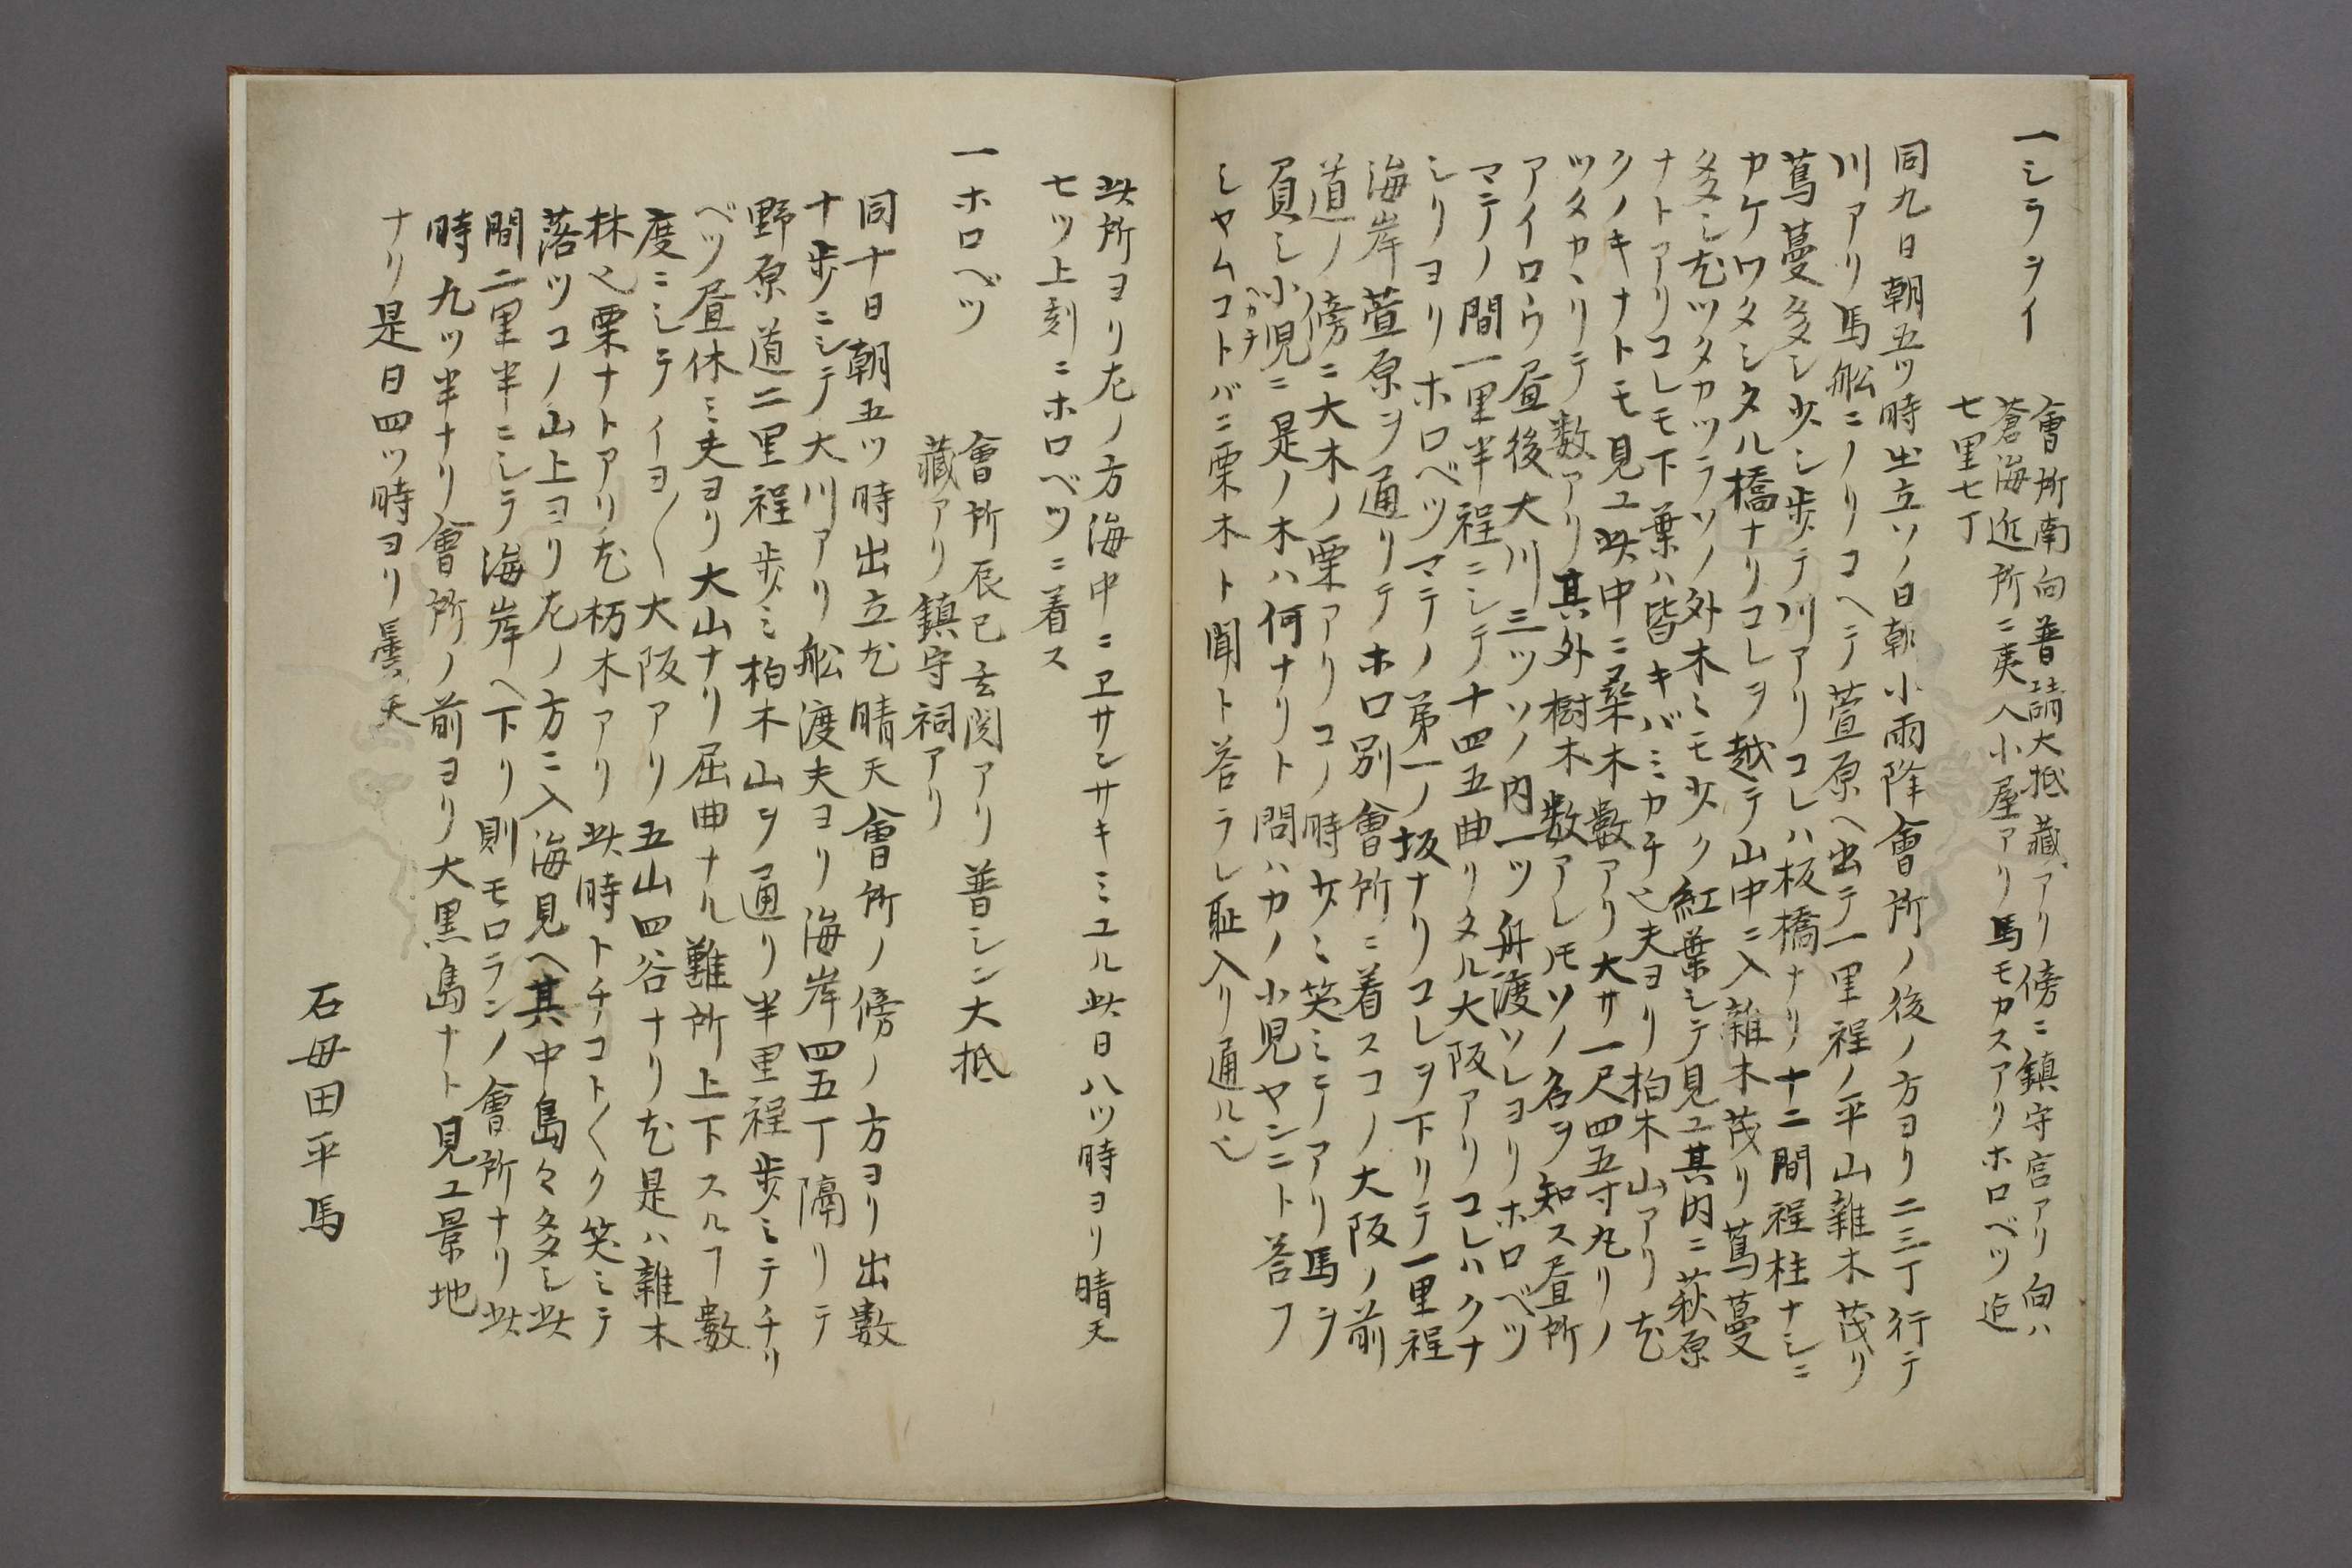 一シラヲイ
會所南向普請大抵藏アリ傍ニ鎮守宮アリ向ハ
蒼海近所ニ夷人小屋アリ馬モカスアリホロベツ迠
七里七丁
同九日朝五ツ時出立ソノ日朝小雨降會所ノ後ノ方ヨリ二三丁行テ
川アリ馬舩ニノリコヘテ萱原ヘ出テ一里程ノ平山雜木茂リ
蔦蔓多シ少シ歩テ川アリコレハ板橋ナリ十二間程柱ナシニ
カケワタシタル橋ナリコレヲ越テ山中ニ入雜木茂リ蔦蔓
多シ尤ツタカツラソノ外木ミモ少ク紅葉シテ見ユ其内ニ萩原
ナトアリコレモ下葉ハ皆キバミカチ也夫ヨリ柏木山アリ尤
クノキナトモ見ユ此中ニ桑木數アリ大サ一尺四五寸丸リノ
ツタカヽリテ数アリ其外樹木数アレ𪜈ソノ名ヲ知ス昼所
アイロウ昼後大川三ツソノ内一ツ舟渡ソレヨリホロベツ
マテノ間一里半程ニシテ十四五曲リタル大阪アリコレハクナ
シリヨリホロベツマテノ第一ノ坂ナリコレヲ下リテ一里程
海岸萱原ヲ通リテホロ別會所ニ着スコノ大阪ノ前
道ノ傍ニ大木ノ栗アリコノ時少ミ笑ミニアリ馬ヲ
負シ小児ニ是ノ木ハ何ナリト問ハカノ小児ヤンニト荅フ
ヘカチ
シヤムコトバニ栗木ト聞ト荅ラレ耻入リ通ル也
此所ヨリ左ノ方海中ニヱサンサキミユル此日八ツ時ヨリ晴天
七ツ上刻ニホロベツニ着ス
一ホロベツ
會所辰巳玄関アリ普シン大抵
藏アリ鎮守祠アリ
同十日朝五ツ時出立尤晴天會所ノ傍ノ方ヨリ出數
十歩ニシテ大川アリ舩渡夫ヨリ海岸四五丁隔リテ
野原道二里程歩ミ柏木山ヲ通リ半里程歩ミテチリ
ベツ昼休ミ夫ヨリ大山ナリ屈曲ナル難所上下スルヿ數
度ニシテイヨ〱大阪アリ五山四谷ナリ尤是ハ雜木
林也栗ナトアリ尤杤木アリ此時トチコト〱ク笑ミテ
落ツコノ山上ヨリ左ノ方ニ入海見ヘ其中島々多シ此
間二里半ニシラ海岸ヘ下リ則モロランノ會所ナリ此
時九ツ半ナリ會所ノ前ヨリ大黒島ナト見ユ景地
ナリ是日四ツ時ヨリ曇天
石母田平馬